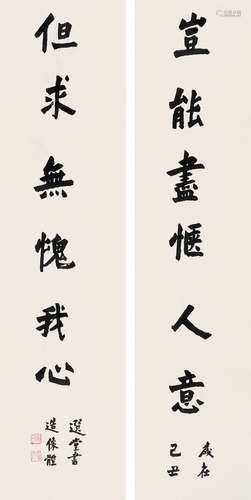 豈能盡愜人意
歲在
己丑
但求無愧我心
選堂書
造像體